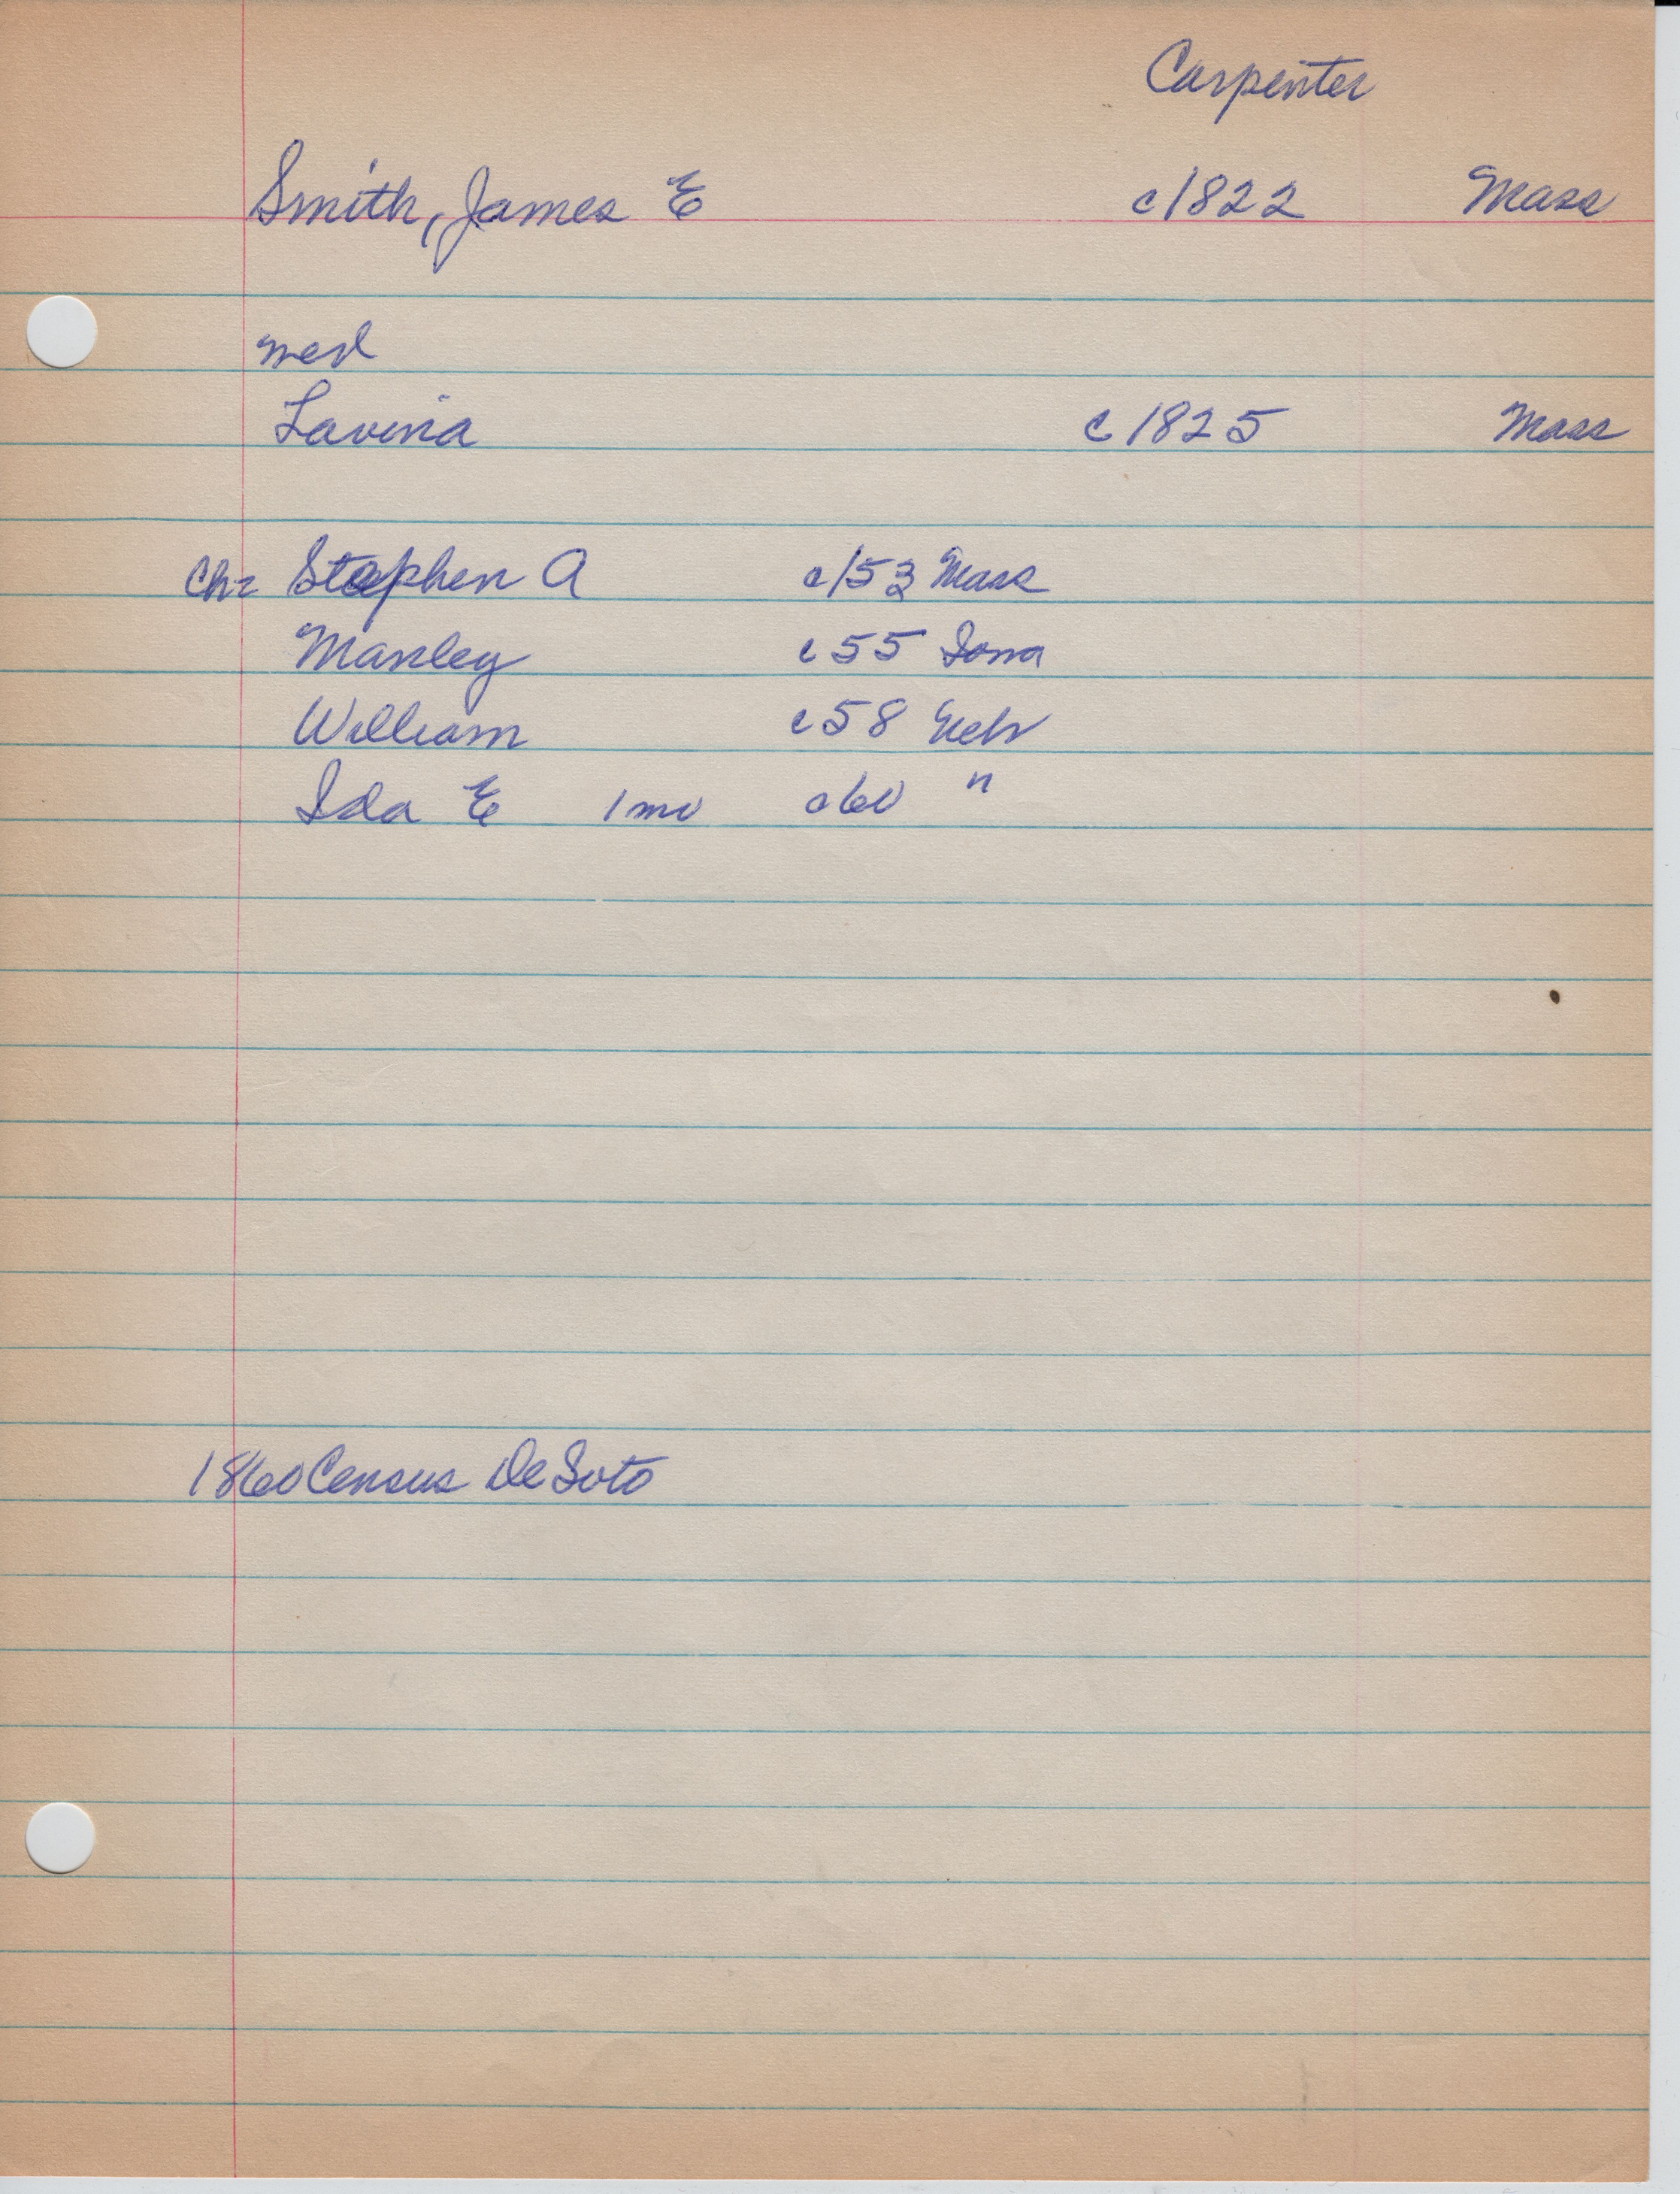 Carpenter
Smith, James E c1822 Mass
med
Lavina c1825 Mass
Ch: Stephen A c/53 Mass
Manley c55 Iowa
William c58 Neb
Ida E 1 mo c60 "
1860 Census De Soto